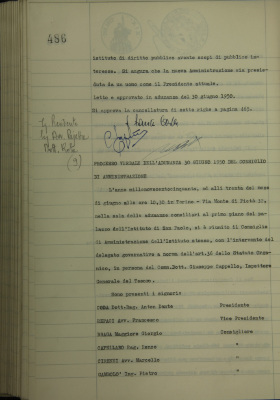 486
istituto di diritto pubblico avente scopi di pubblico in-
teresse. Si augura che la nuova Amministrazione sia presie-
duta da un uomo come il Presidente attuale.
Letto e approvato in adunanza del 30 giugno 1950.
Si approva la cancellatura di sette righe a pagina 483.
Il Presidente
(9)
PROCESSO VERBALE DELL'ADUNANZA 30 GIUGNO 1950 DEL CONSIGLIO
DI AMMINISTRAZIONE
L'anno millenovecentocinquanta, ed alli trenta del mese
di giugno alle ore 10,30 in Torino - Via Monte di Pietà 32,
nella sala delle adunanze consiliari al primo piano del pa-
lazzo dell'Istituto di San Paolo, si è riunito il Consiglio
di Amministrazione dell'Istituto stesso, con l'intervento del
delegato governativo a norma dell'art.36 dello Statuto Orga-
nico, in persona del Comm.Dott. Giuseppe Cappello, Ispettore
Generale del Tesoro.
Sono presenti i signori
DANA Dott.Rag. Anton Dante Presidente
BEDAZI Avv. Francesco Vice Presidente
BRAGA Maggiore Giorgio Consigliere
CAPPELANO Rag. Renzo "
Avv. Marcello "
Ing. Pietro "